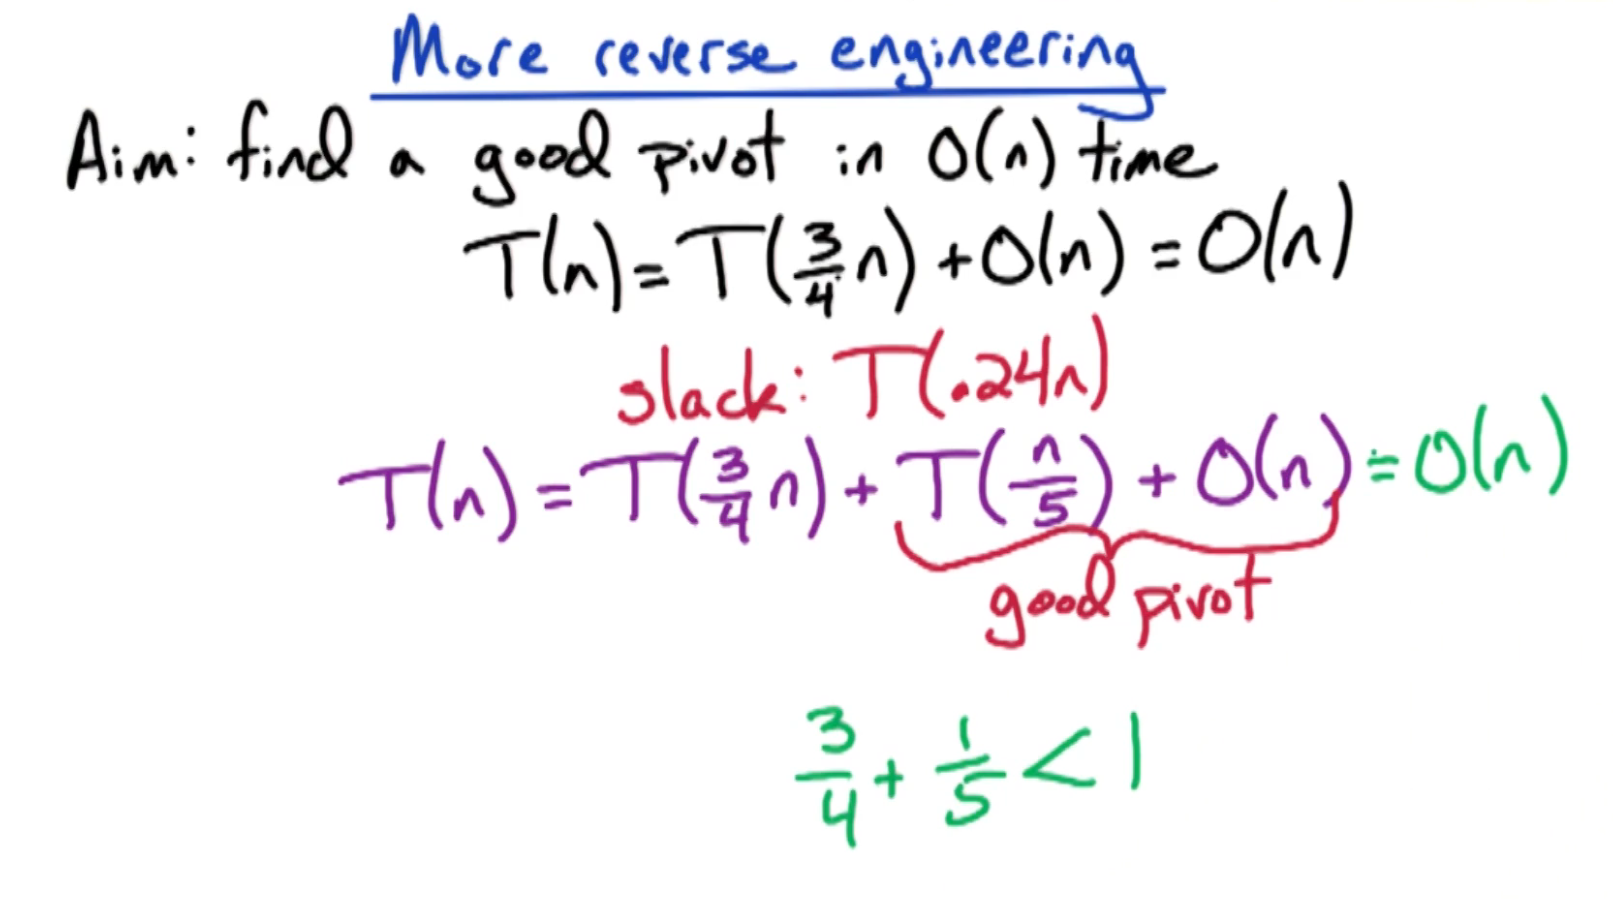 More reverse engineering
Aim: find a good pivot in O(n) time
T(n) = T(3/4 n) + O(n) = O(n)
slack: T(.24n)
T(n) = T(3/4 n) + T(n/5) + O(n) = O(n)
good pivot
3/4 + 1/5 < 1